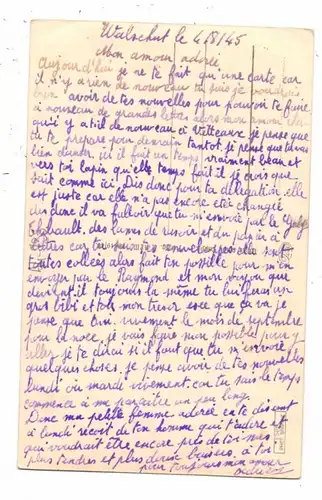 Walschut le 4/8/45
Mon amour adoré
Aujourd'hui je ne te fait qu'une carte car
il n'y a rien de nouveau tu sais je voudrais
bien avoir de tes nouvelles pour pouvoir te faire
si nouveau de grandes lettres alors mon amour
qu'i y a t'il de nouveau a Vitteaux je pense que
tu te prepare pour demain tantot, je pense que tu vas
bien danser, ici il fait un temps vraiment beau et
vers toi lapin qu'elle temps fait il je crois que
sait comme ici. Dis donc pour ta
est juste car elle n'a pas encore etée changée
dis donc il va falloir que tu m'envoie par le
des lames de rasoir et du papier a
lettres car tu
toutes collées alors fait ton possible pour m'en
envoyer par le Raymond et mon voyou que
devient il toujours le même tu lui feras un
gros bibi et toi mon tresor esce que ca va je
pense que Oui, vivement le mois de septembre
pour la noce, je vais faire mon possible pour y
aller je te dirai si il faut que tu m'envoie
quelques choses. je pense avoir de tes nouvelles
lundi ou mardi vivement, car tu sais le temps
commence a me paraitre un peu long.
Donc ma petite femme adorée en te disant
a lundi reçoit de ton homme qui t'adore et
qui voudrait être encore près de toi mes
plus tendres et plus doux baisers, a toi
pour toujours mon amour